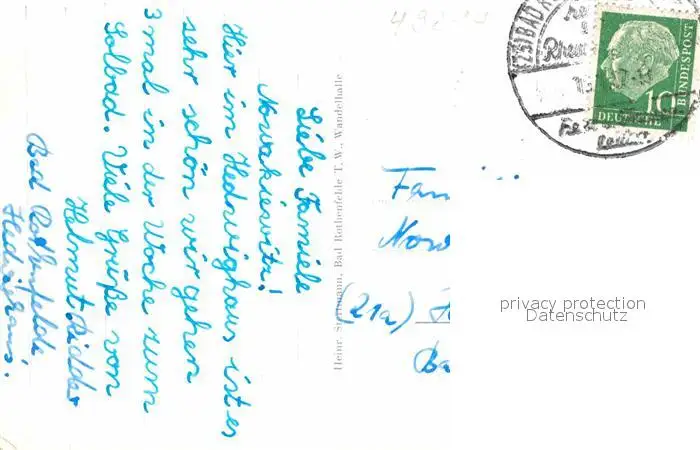 Liebe Familie
Nowakiewitz!
Hier im Hedwighaus ist es
sehr schön wir gehen
3 mal in der Woche zum
Solbad. Viele Grüße von
Helmut Ridder
Bad Rothenfelde
Hedwighaus!
Bad Rothenfelde T.W., Wandelhalle
Fam
Now
(21a)
Ba
DEUTSCHE
BUNDESPOST
10
privacy protection
Datenschutz